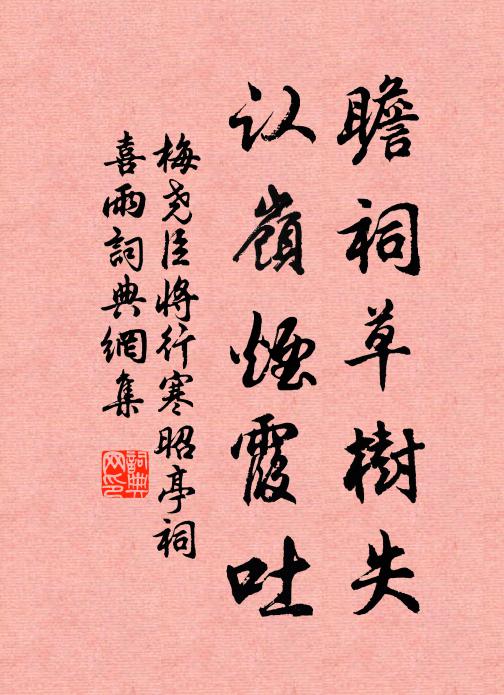 瞻祠草樹失
认嶺煙霞吐
梅尧臣將行寒昭亭祠
喜雨詞典網集
詞典
网印